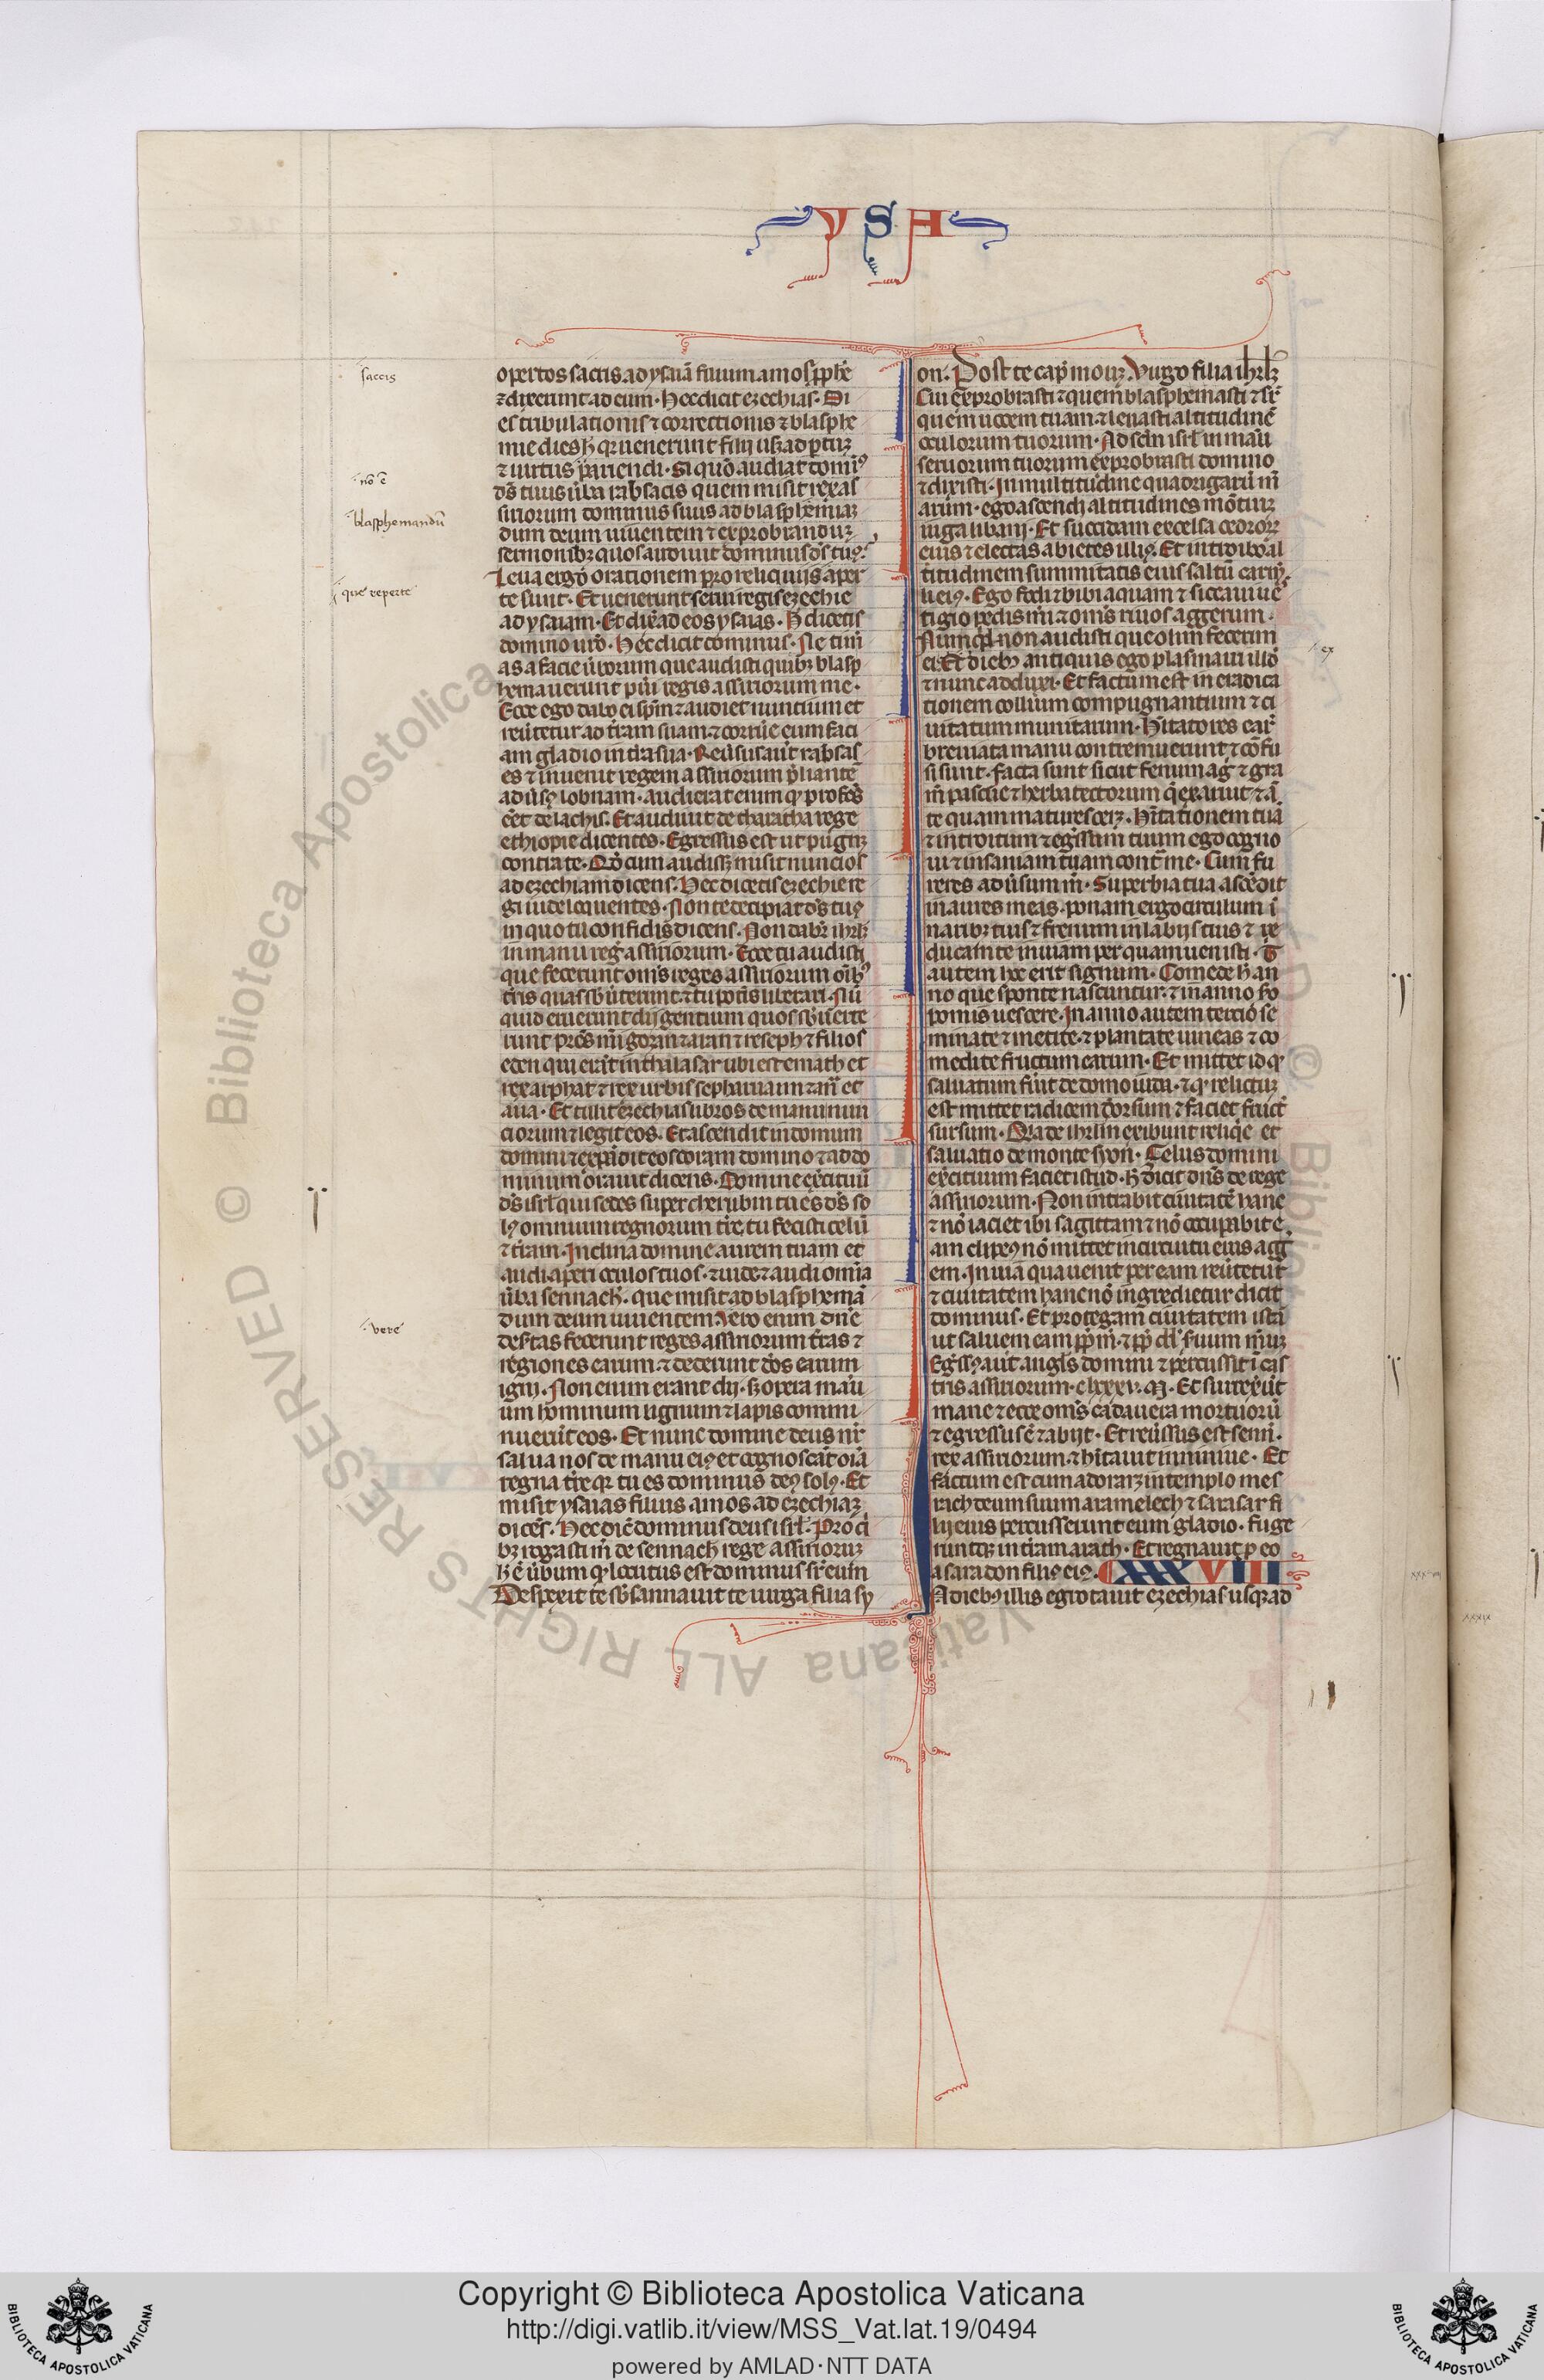 YSA
opertos saccis ad ysaiã filium amos ꝓphẽ
⁊ dixerunt ad eum· Hec dicit ezechias· Di
es tribulationis ⁊ correctionis ⁊ blasphe
mie dies h̃ qꝛ uenerunt filij usqꝫ ad ptũ
⁊ uirtus pariendi· Si quõ audiat domiꝰ
ds̃ tuus ũba rabsacis quem misit rex as
siriorum dominus suus ad blasphemiaꝫ
dum deum uiuentem ⁊ exprobranduꝫ
sermonibꝫ quos audiuit dominus ds̃ tuꝰ·
Leua ergo orationem pro reliquijs aper
te sunt· Et uenerunt serui regis ezechie
ad ysaiam· Et dix̃ ad eos ysaias· H̃ dicetis
domino ũro· Hec dicit dominus· Ne tim
as a facie ũborum que audisti quibꝫ blasp
hemauerunt pũi regis assiriorum me·
Ecce ego dabo ei spm̃ ⁊ audiet nuncium et
reũtetur ad tr̃am suam ⁊ corrũe eum faci
am gladio in tr̃a sua· Reũsus aũt rabsac
es ⁊ inuenit regem assiriorum p̃liantẽ
adũsꝰ lobnam· audierat enim qꝫ profcs̃
eẽt de lachis· Et audiuit de tharatha rege
ethiopie dicentes· Egressus est ut pugnꝫ
contra te· Qõ cum audissꝫ misit nuncios
ad ezechiam dicens· Hec dicetis ezechie re
gi iude loquentes· Non te decipiat ds̃ tuꝰ
in quo tu confidis dicens· Non dabꝫ ihrl̃ꝫ
in manu reg̃ assiriorum· Ecce tu audisti
que fecerunt oms̃ reges assiriorum oĩbꝰ
tr̃is quas sbũterunt ⁊ tu potis liberari· Nũ
quid eruerunt dij gentium quos sbũerte
runt prẽs mĩ goran ⁊ aran ⁊ reseph ⁊ filios
eden qui erãt in thalasar ubi est emath et
rex arphat ⁊ rex urbis sepharuaim ⁊ anẽ et
aua· Et tulit ezechias libros de manu nun
ciorum ⁊ legit eos· Et ascendit in domum
domini ⁊ expãdit eos coram domino ⁊ ad do
minum orauit dicens· Domine ex̃cituũ
ds̃ isrl̃ qui sedes super cherubin tu es ds̃ so
lꝰ omnium regnorum tr̃e tu fecisti celũ
⁊ tr̃am· Inclina domine aurem tuam et
audi aperi oculos tuos· ⁊ uide ⁊ audi omĩa
ũba sennach̃· que misit ad blasphemã
dum deum uiuentem Vero enim dñe
desertas fecerunt reges assiriorum tr̃as ⁊
regiones earum ⁊ dederunt dõs earum
igni· Non enim erant dij· sꝫ opera manu
um hominum lignum ⁊ lapis commi
nuerũt eos· Et nunc domine deus nr̃
salua nos de manu eiꝰ et cognoscãt oĩa
regna tr̃e qꝛ tu es dominus deꝰ solꝰ· Et
misit ysaias filius amos ad ezechiaꝫ
dicẽs· Hec dic̃ dominus deus isrl̃· Pro q̃i
bꝫ rogasti m̃ de sennach̃ rege assirioruꝫ
h̃ ẽ ũbum qꝫ locutus est dominus sr̃ eum
Despexit te sb̃sannauit te uirga filia sy
on· Post te cap̃ mouꝫ Virgo filia ihrl̃ꝫ
Cui exprobrasti ⁊ quem blasphemasti ⁊ sr̃
quem uocem tuam ⁊ leuasti altitudinẽ
oculorum tuorum· Ad scm̃ isrl̃ in manu
seruorum tuorum exprobrasti domino
⁊ dixisti· In multitudine quadrigarũ m̃
arum· ego ascendi altitudines mõtiuꝫ
iuga libani· Et succidam excelsa cedroꝝ
eius ⁊ electas abietes illiꝰ· Et introibo al
titudinem summitatis eius saltũ carm̃
li eiꝰ· Ego fodi ⁊ bibi aquam ⁊ siccaui ue
tigio pedis mĩ ⁊ omẽs riuos aggerum·
Numqd̃ non audisti que olim fecerim
ei· Et diebꝫ antiquis ego plasmaui illõ
⁊ nunc adduxi· Et factum est in eradica
tionem collium compugnantium ⁊ ci
uitatum munitarum· Hĩtatores eaꝝ
breuiata manu contremuerunt ⁊ cõfu
si sunt· facta sunt sicut fenum ag̃ ⁊ gra
m̃ pascue ⁊ herba tectorum q̃ exaruit ⁊ ã
te quam maturesceꝫ· Hĩtationem tuã
⁊ introitum ⁊ egr̃ssum tuum ego cogno
ui ⁊ insaniam tuam contr̃ me· Cum fu
reres adũsum m̃· Superbia tua ascẽdit
in aures meas· ponam ergo circulum ĩ
naribꝫ tuis ⁊ frenum in labijs tuis ⁊ re
ducam te in uiam per quam uenisti· T
autem hoc erit signum· Comede h̃ an
no que sponte nascuntur· ⁊ in anno so
pomis uescere· In anno autem tercio se
minate ⁊ metite· ⁊ plantate uineas ⁊ co
medite fructum earum· Et mittet id qꝫ
saluatum fũit de domo iuda· ⁊ qꝫ relictuꝫ
est mittet radicem dor̃sum ⁊ faciet fruct̃
sursum· Qia de ihrl̃m exibunt reliqe et
saluatio de monte syon· Celus domini
ex̃cituum faciet istud· h̃ dicit dñs de rege
assiriorum· Non intrabit ciuitatẽ hanc
⁊ nõ iaciet ibi sagittam ⁊ nõ occupabit e
am clipeꝰ nõ mittet in circuitu eius agg̃
em· In uiã qua uenit per eam reũtetur
⁊ ciuitatem hanc nõ ingredietur dicit
dominus· Et protegam ciuitatem istã
ut saluem eam ꝓp̃ m̃· ⁊ ꝓp̃ dd̃ seruum m̃uꝫ
Egr̃ssꝰ aut̃ angl̃s domini ⁊ percussit ĩ cas
tris assiriorum· clxxxv· M· Et surrexer̃ũt
mane ⁊ ecce oms̃ cadauera mortuorũ
⁊ egressus ẽ ⁊ abijt· Et reũssus est senñ·
rex assiriorum· ⁊ hĩtauit in niniue· Et
factum est cum adoraꝫ in templo mes
rach deum suum aramelech ⁊ sarasar fi
lij eius percusserunt eum gladio· fuge
runtqꝫ in tr̃am arath· Et regnauit ꝓ eo
asaradon filiꝰ eiꝰ· XXXVIII
N diebꝰ illis egrotauit ezechias usqꝫ ad
saccis
nõ ẽ
blasphemandũ
que reperte
vere
ex
Copyright © Biblioteca Apostolica Vaticana
http://digi.vatlib.it/view/MSS_Vat.lat.19/0494
powered by AMLAD·NTT DATA
BIBLIOTECA APOSTOLICA VATICANA
BIBLIOTECA APOSTOLICA VATICANA
© Biblioteca Apostolica Vaticana ALL RIGHTS RESERVED